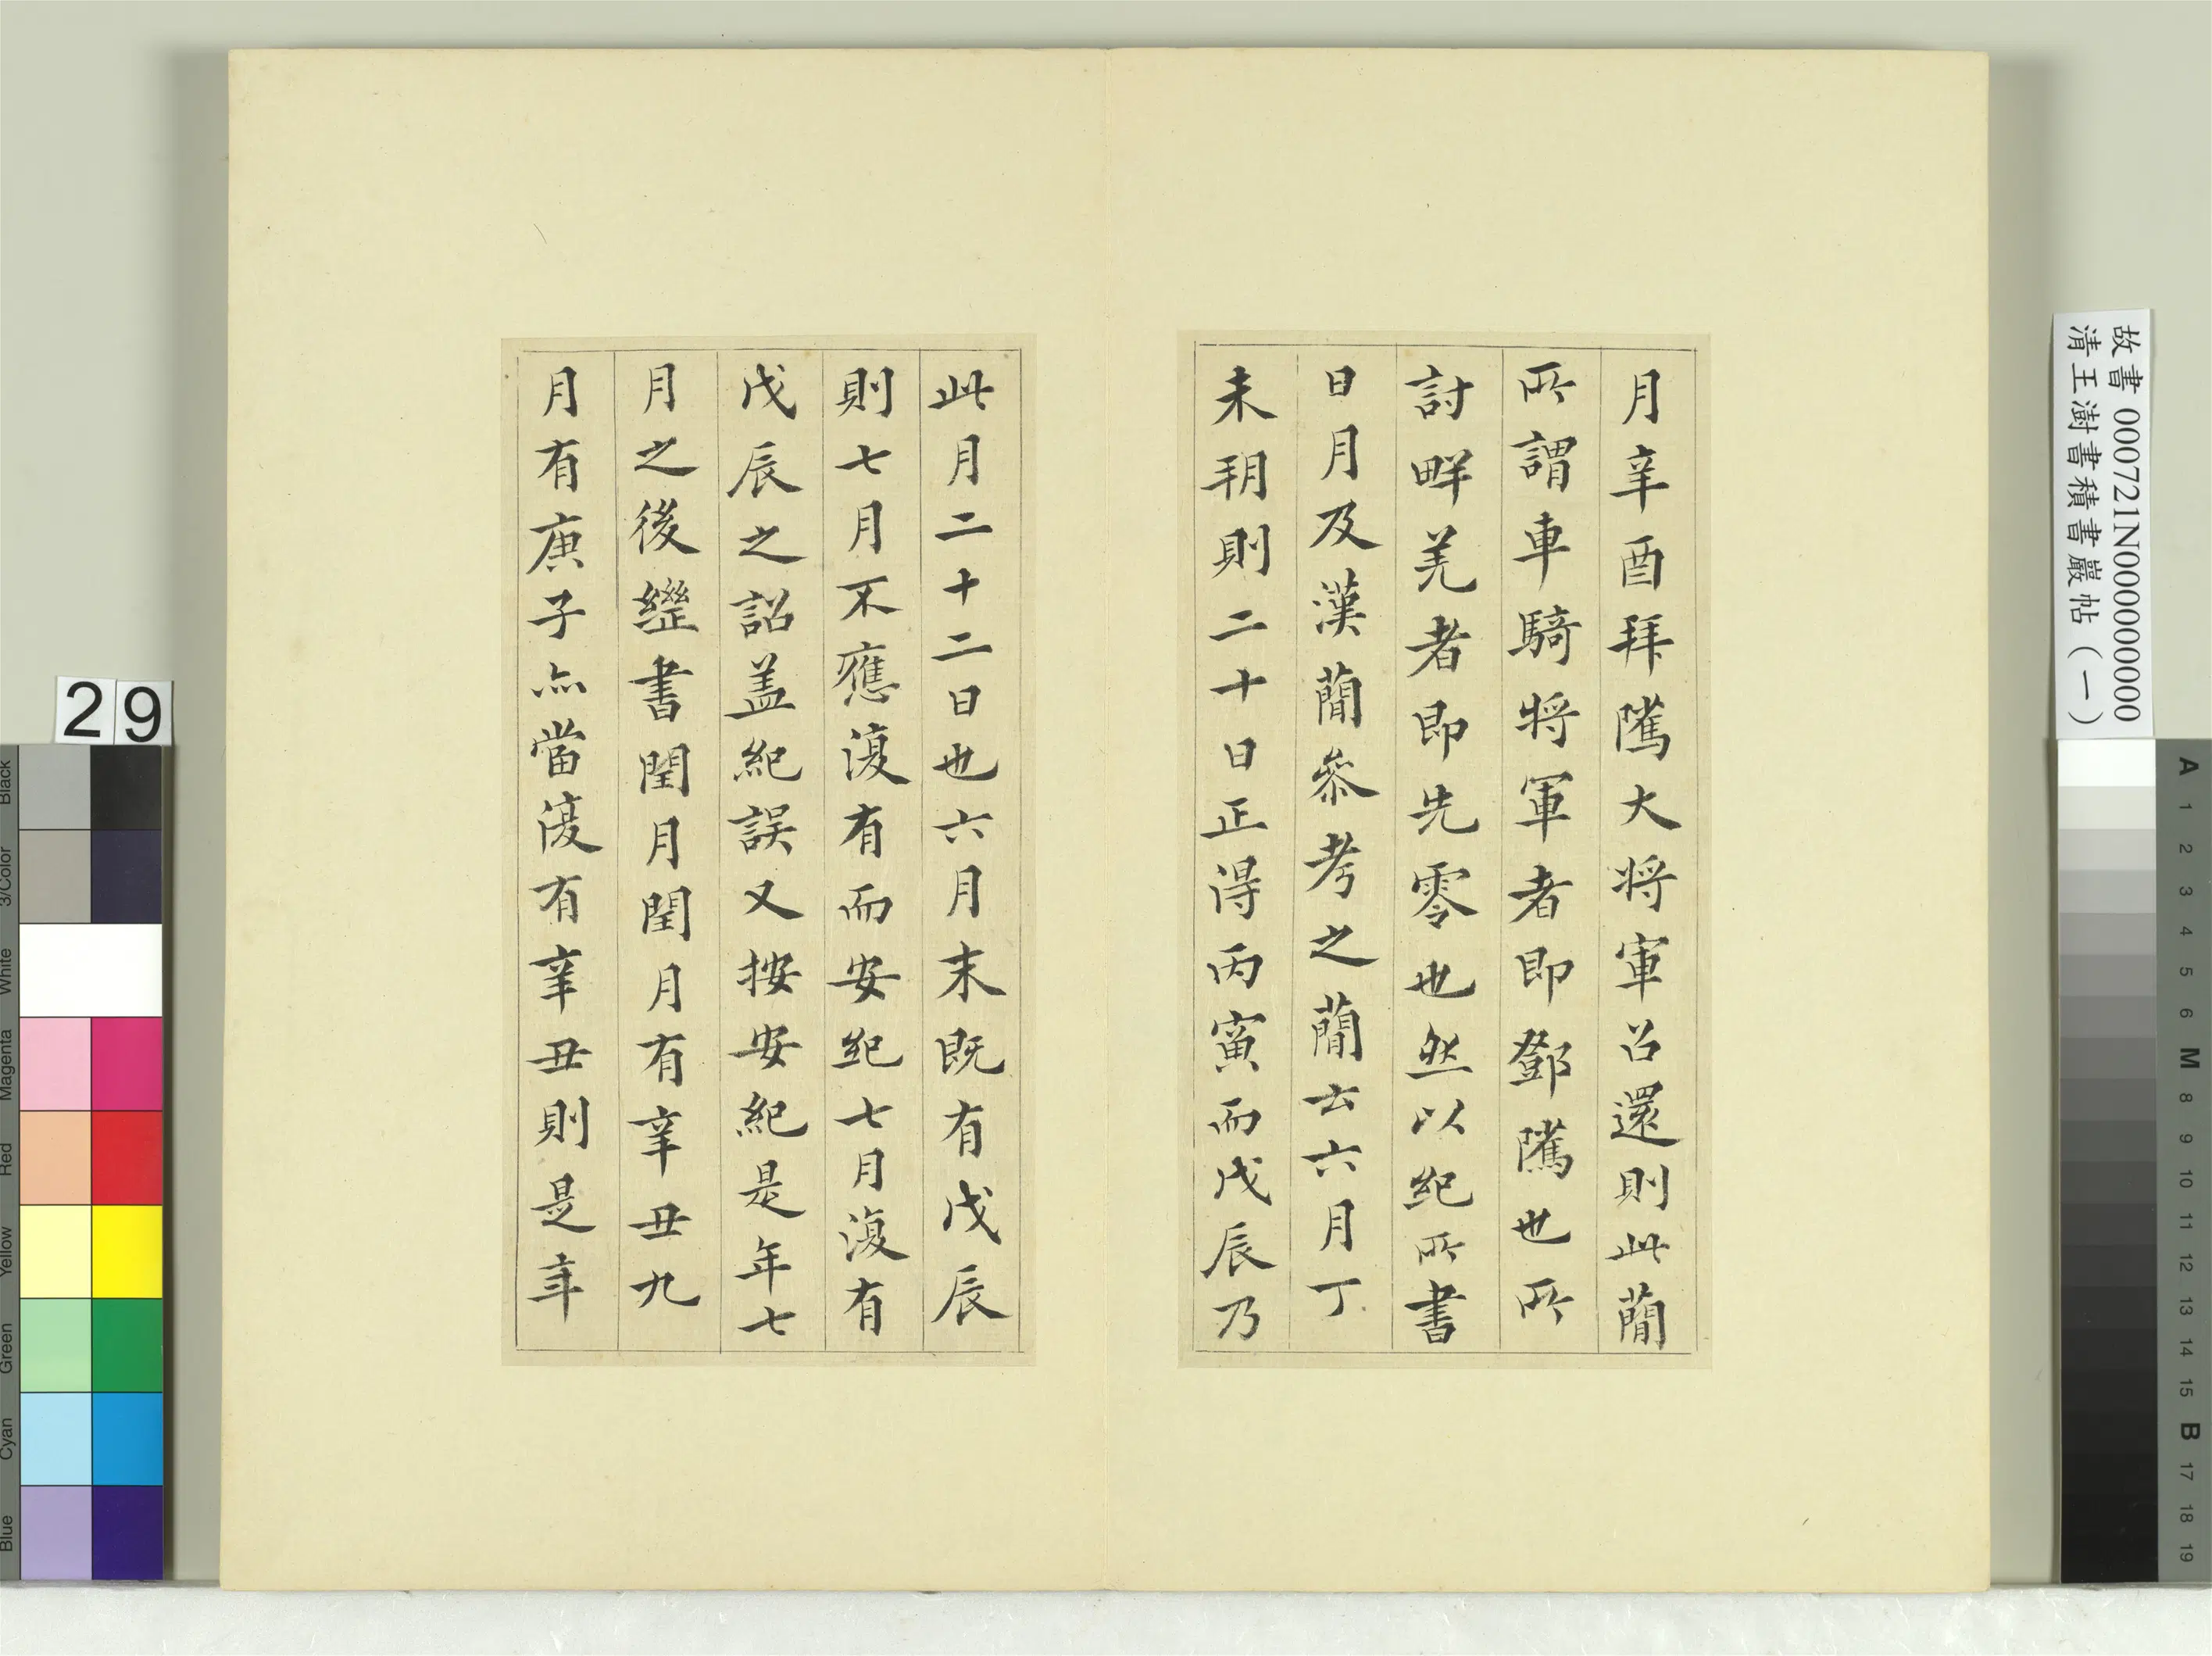 月辛酉拜隲大将軍召還則此蕳
所謂車騎将軍者即鄧隲也所
討畔羌者即先零也然以紀所書
日月及漢蕳叅考之蕳云六月丁
未朔則二十日正得丙寅而戊辰乃
此月二十二日也六月末既有戊辰
則七月不應復有而安紀七月復有
戊辰之詔盖紀誤又按安紀是年七
月之後繼書閏月閏月有辛丑九
月有庚子亦當復有辛丑則是年
故書 000721N000000000
清王澍書積書巖帖（一）
29
Black
3/Color
White
Magenta
Red
Yellow
Green
Cyan
Blue
A 1 2 3 4 5 6 M 8 9 10 11 12 13 14 15 B 17 18 19